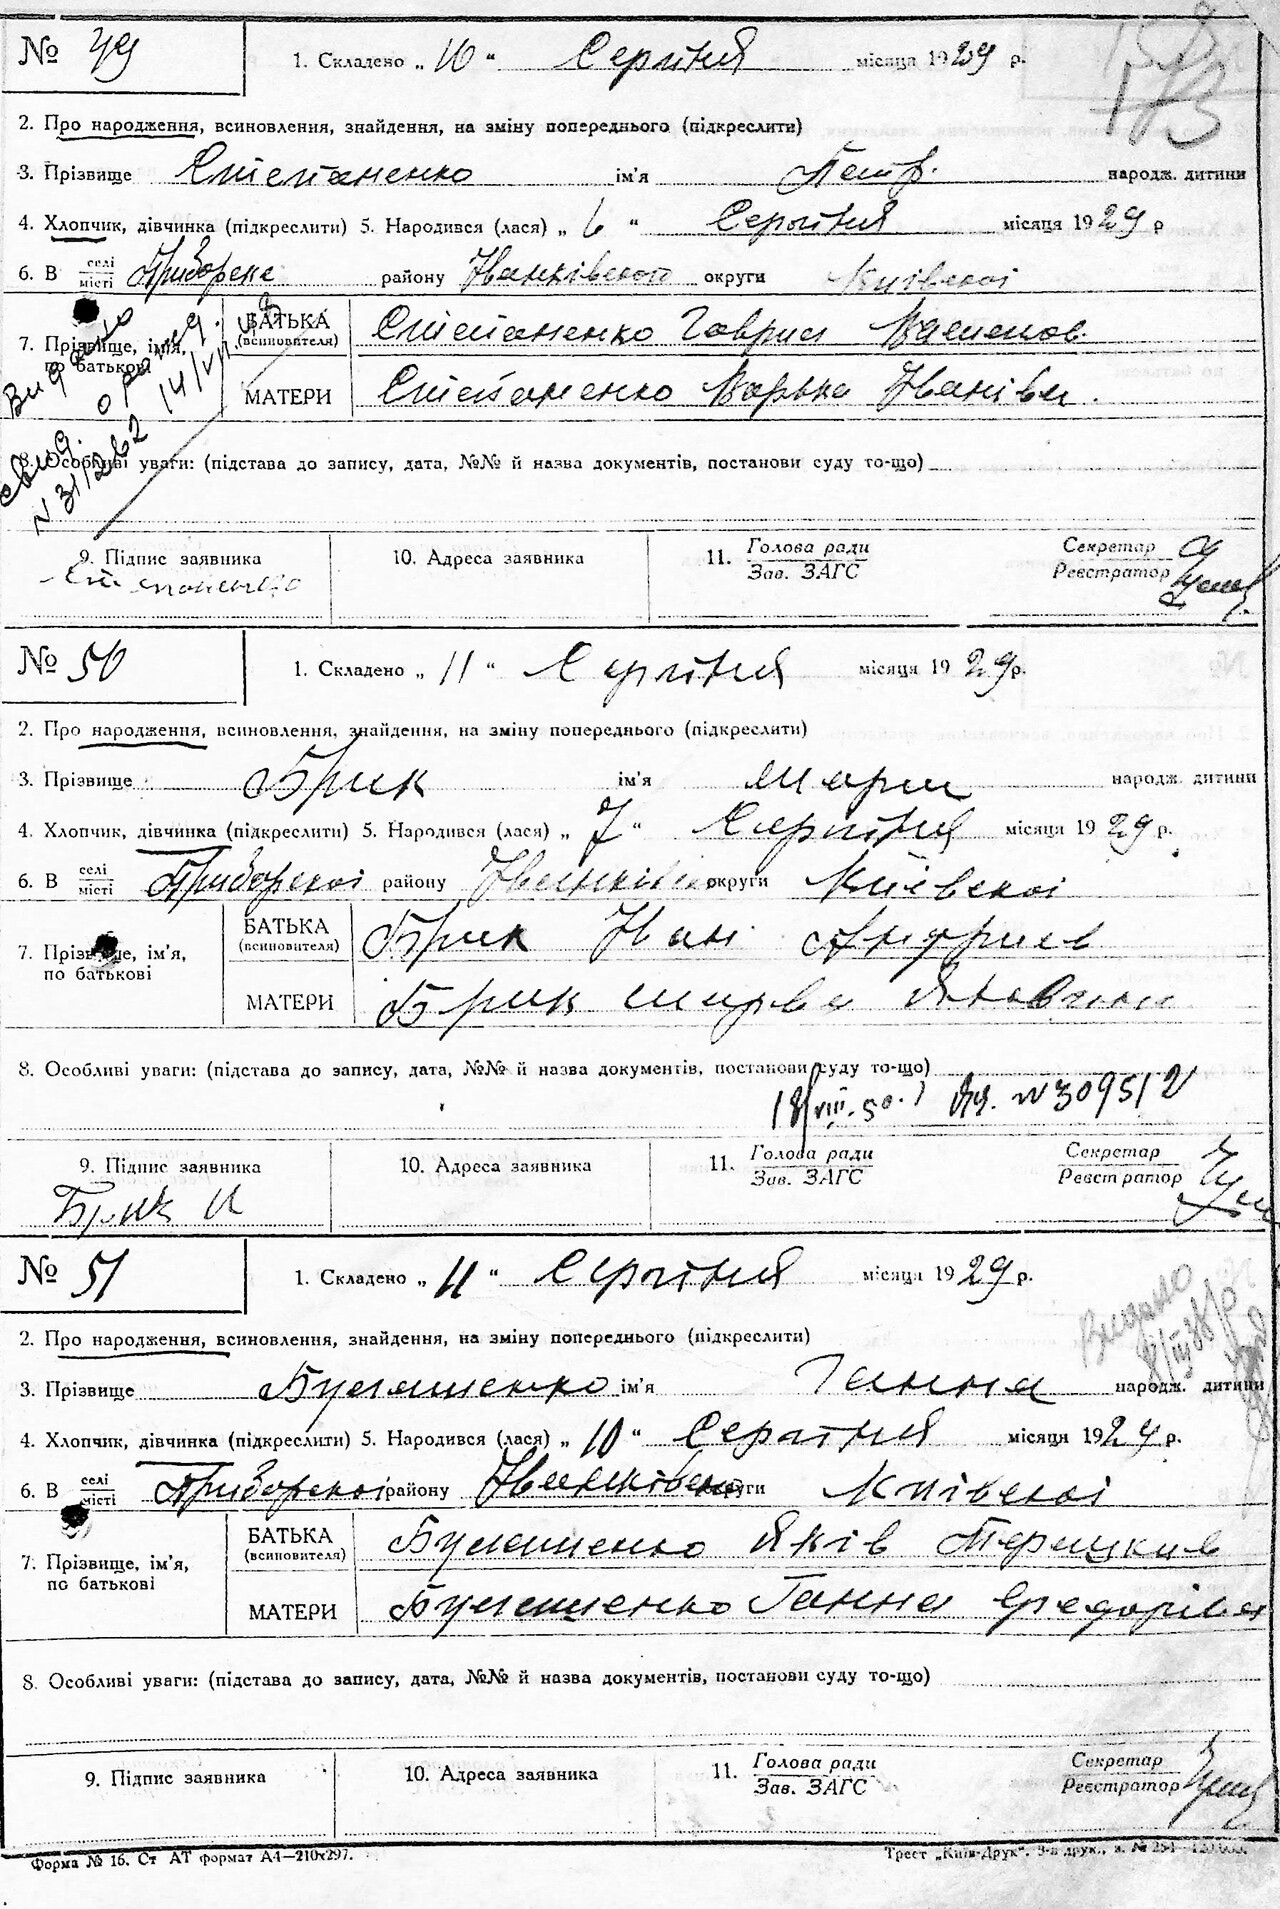 № 49 1. Складено „ 10 “ Серпня місяця 1929 р.
2. Про народження, всиновлення, знайдення, на зміну попереднього (підкреслити)
3. Прізвище Степаненко ім'я Петр. народж. дитини
4. Хлопчик, дівчинка (підкреслити) 5. Народився (лася) „ 6 “ Серпня місяця 1929 р
6. В селі/місті району Іванківського округи Київскої
7. Прізвище, ім'я, по батькові
БАТЬКА (всиновителя) Степаненко Гаврил
МАТЕРИ Степаненко Марька Іванівн.
Видано
14/VII
свид.
N 31/262
8. Особливі уваги: (підстава до запису, дата, №№ й назва документів, постанови суду то-що)
9. Підпис заявника 10. Адреса заявника 11. Голова ради / Зав. ЗАГС Секретар / Реєстратор
Степаненко
№ 50 1. Складено „ 11 “ Серпня місяця 1929 р.
2. Про народження, всиновлення, знайдення, на зміну попереднього (підкреслити)
3. Прізвище Брик ім'я народж. дитини
4. Хлопчик, дівчинка (підкреслити) 5. Народився (лася) „ 7 “ Серпня місяця 1929 р.
6. В селі/місті Приборскої району округи Київскої
7. Прізвище, ім'я, по батькові
БАТЬКА (всиновителя) Брик Іван Андриев
МАТЕРИ Брик
8. Особливі уваги: (підстава до запису, дата, №№ й назва документів, постанови суду то-що)
18/VIII-50. N 309512
9. Підпис заявника 10. Адреса заявника 11. Голова ради / Зав. ЗАГС Секретар / Реєстратор
Брик И
№ 51 1. Складено „ 11 “ Серпня місяця 1929 р.
2. Про народження, всиновлення, знайдення, на зміну попереднього (підкреслити)
Видано
3. Прізвище ім'я Ганна народж. дитини
4. Хлопчик, дівчинка (підкреслити) 5. Народився (лася) „ 10 “ Серпня місяця 1929 р.
6. В селі/місті Приборскої району округи Київскої
7. Прізвище, ім'я, по батькові
БАТЬКА (всиновителя) Яків
МАТЕРИ Ганна Федорівн
8. Особливі уваги: (підстава до запису, дата, №№ й назва документів, постанови суду то-що)
9. Підпис заявника 10. Адреса заявника 11. Голова ради / Зав. ЗАГС Секретар / Реєстратор
Форма № 16. Ст АТ формат А4—210x297. Трест „Київ-Друк“. 3-я друк., з. № 254—120.000.